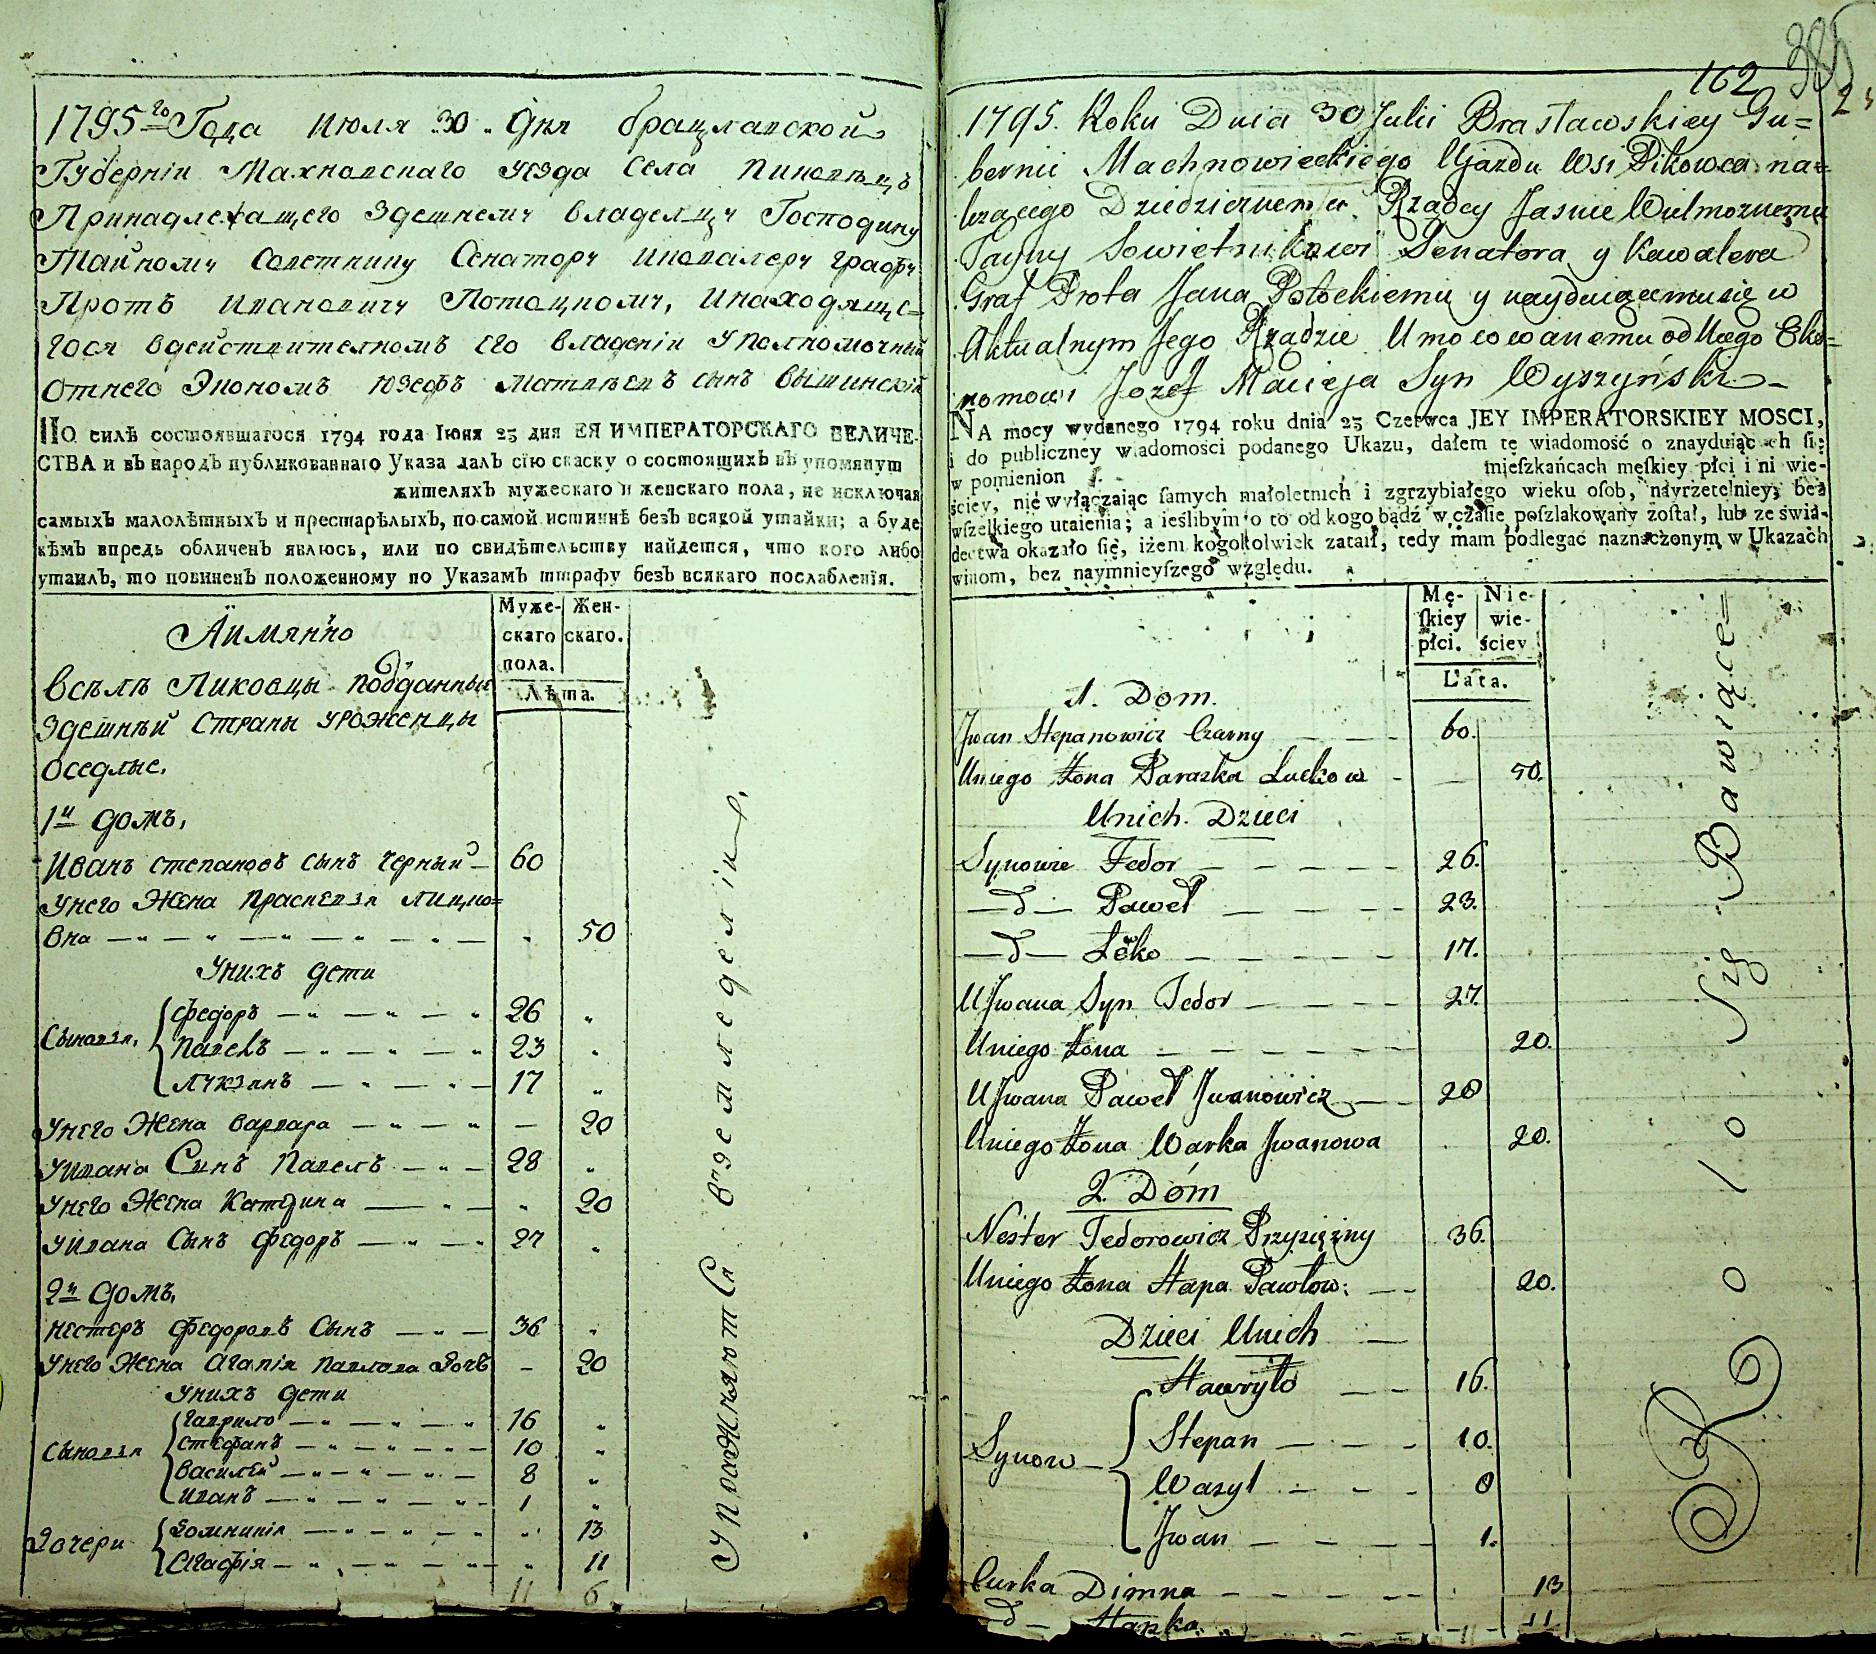 1795го Года Июля 30 Дня брацлавской
Губерніи Махновскаго уезда Села Пиковецъ
Принадлежащего здешнему владелцу Господину
Тайному Советнику Сенатору икавалеру графу
Протъ Ивановичу Потоцкому, инаходяще=
гося вдействителномъ его владеніи уполномочный
отнего Экономъ Юзефъ Матвеевъ сынъ Вышинскій
ПО силѣ состоявшагося 1794 года Іюня 23 дня ЕЯ ИМПЕРАТОРСКАГО ВЕЛИЧЕ-
СТВА и въ народъ публикованнаго Указа далъ сію скаску о состоящихъ въ упомянут
жителяхъ мужескаго и женскаго пола, не исключая
самыхъ малолѣтныхъ и престарѣлыхъ, по самой истиннѣ безъ всякой утайки; а буде
кѣмъ впредь обличенъ явлюсь, или по свидѣтельству найдется, что кого либо
утаилъ, то повиненъ положенному по Указамъ штрафу безъ всякаго послабленія.
Муже-скаго пола.
Жен-скаго.
Лѣта.
Аимянно
Вселѣ Пиковцы подданные
здешней Страны уроженцы
оседлые.
1й домъ,
Иванъ степановъ сынъ черный 60
Унего Жена Прасковя Лицко=
вна 50
Унихъ дети
Сыновя,
Федоръ 26
Павелъ 23
Лукянъ 17
Унего Жена варвара 20
УИвана Сынъ Павелъ 28
Унего Жена Катерина 20
УИвана Сынъ Федоръ 27
2й домъ,
Нестеръ Федоровъ Сынъ 36
Унего Жена Агапія Павлова Дочь 20
Унихъ дети
Сыновя
Гаврило 16
Стефанъ 10
Василей 8
Иванъ 1
Дочери
Домникія 13
Агафія 11
11 6
Упражняютса вземледеліи,
162
385
1795. Roku Dnia 30 Julii Bracławskiey Gu=
bernii Machnowieckiego Ujazdu Wsi Pikowca na=
lezącego Dziedzicznemu Rządcy Jasnie Wielmoznemu
Tayny Sowietnikowi Senatora y Kawalera
Graf Prota Jana Potockiemu y nayduiącemusię w
Aktualnym Jego Rządzie Umocowanemu od Niego Eko=
nomowi Jozef Macieja Syn Wyszyński
NA mocy wydanego 1794 roku dnia 23 Czerwca JEY IMPERATORSKIEY MOSCI,
i do publiczney wiadomości podanego Ukazu, dałem tę wiadomość o znayduiących ſię
w pomienion mieſzkańcach męſkiey płci i ni wie-
ściey, nie wyłączaiąc ſamych małoletnich i zgrzybiałego wieku oſob, nayrzetelniey, bez
wſzelkiego utaienia; a ieślibym o to od kogo bądź w czaſie poſzlakowany zoſtał, lub ze świa-
dectwa okazało ſię, iżem kogokolwiek zataił, tedy mam podlegać naznaczonym w Ukazach
winom, bez naymnieyſzego względu.
Mę-ſkiey płci.
Nie-wie-ściey
Lata.
1. Dom.
Jwan Stepanowicz Czarny 60.
Uniego Żona Paraska Luckow 50.
Unich Dzieci
Synowie Fedor 26.
—d— Paweł 23.
—d— Lcko 17.
UJwana Syn Fedor 27.
Uniego Żona 20.
UJwana Paweł Jwanowicz 28
Uniego Żona Warka Jwanowa 20.
2. Dóm
Nester Fedorowicz Przysiężny 36.
Uniego Żona Hapa Pawłow: 20.
Dzieci Unich
Synow
Hawryło 16.
Stepan 10.
Wasyl 8
Jwan 1.
Curka Dimna 13
—d— Hapka 11
11
Rolo Się Bawiące=